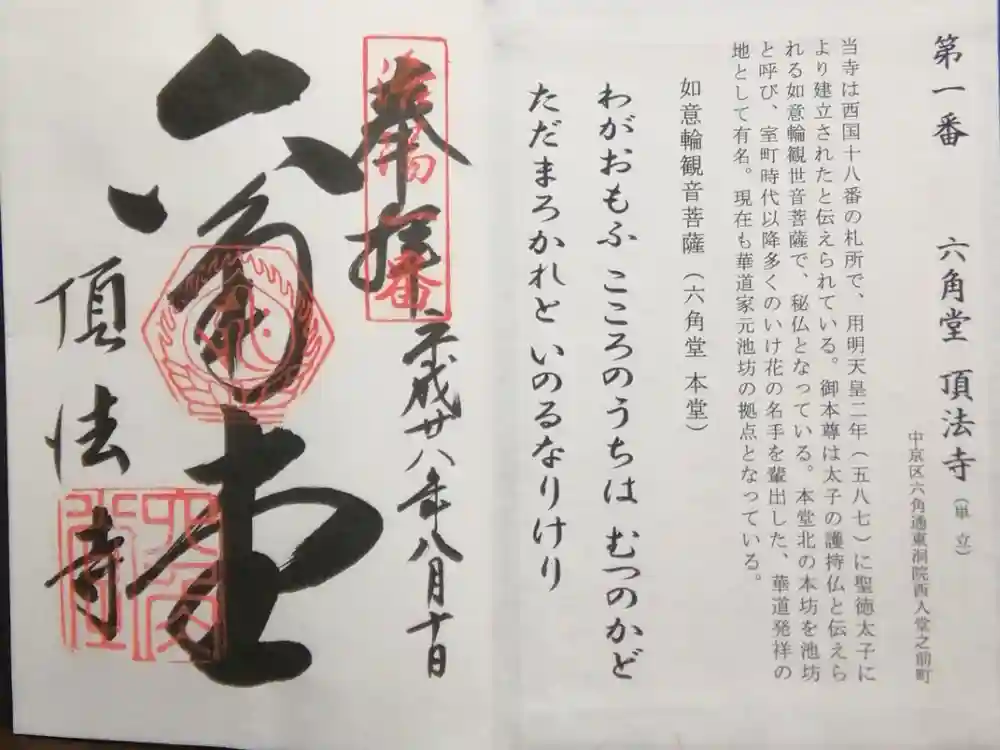 第一番 六角堂 頂法寺(単立)
中京区六角通東洞院西入堂之前町
当寺は西国十八番の札所で、用明天皇二年(五八七)に聖徳太子に
より建立されたと伝えられている。御本尊は太子の護持仏と伝えら
れる如意輪観世音菩薩で、秘仏となっている。本堂北の本坊を池坊
と呼び、室町時代以降多くのいけ花の名手を輩出した、華道発祥の
地として有名。現在も華道家元池坊の拠点となっている。
如意輪観音菩薩(六角堂 本堂)
わがおもふ こころのうちは むつのかど
ただまろかれと いのるなりけり
奉拝
平成廿八年八月十日
六角堂
頂法寺